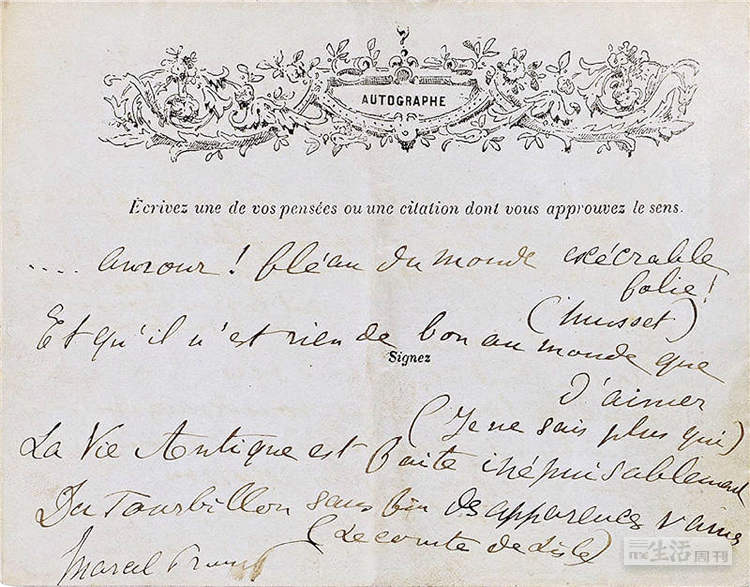 AUTOGRAPHE
Ecrivez une de vos pensées ou une citation dont vous approuvez le sens.
.... amour ! fléau du monde exécrable
folie !
(Musset)
Et qu'il n'est rien de bon au monde que
Signez
d'aimer
(Je ne sais plus qui)
La Vie Antique est faite inépuisablement
Du Tourbillon sans fin des apparences vaines
(Leconte de Lisle)
Marcel Proust
三联生活周刊